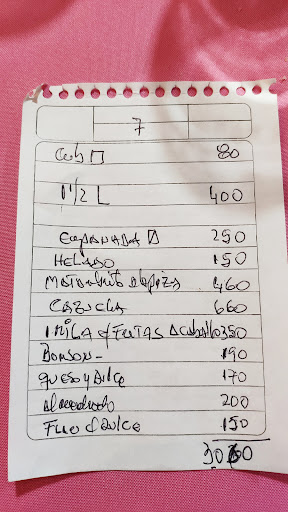 7
Cub 80
1/2 L 400
EMPANADA 250
HELADO 150
MATAMBRITO A LA PIZZA 460
CAZUELA 660
1 MILA C/ FRITAS A CABALLO 350
BOMBON 190
QUESO Y DULCE 170
Almendrado 200
FLAN C/ DULCE 150
3060